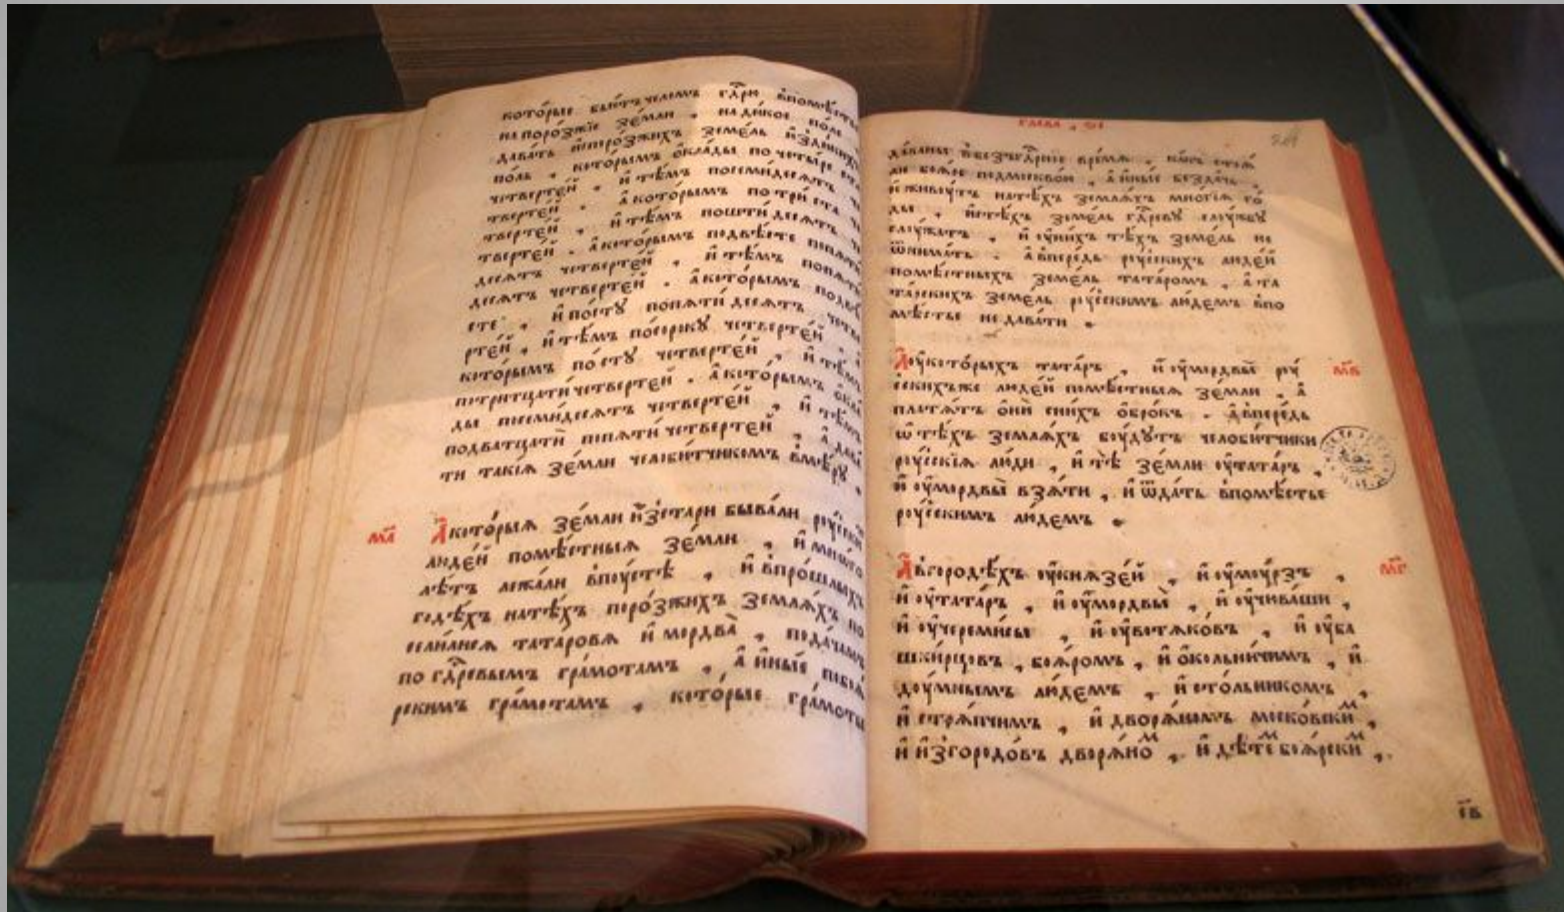 кото́рые бью́тъ челомъ гдⷭ҇рю
на поро́зжїе зе́мли , на ди́кое по́ле
дава́ть и҆с поро́зжихъ земе́ль
поль , кото́рымъ ѻ҆кла́ды по четы́ре
четверте́й , и҆ тѣ́мъ по семидеся́тъ
тверте́й . а҆ кото́рымъ по три́ ста
тверте́й , и҆ тѣ́мъ по шти́ деся́тъ
тверте́й . а҆ кото́рымъ по двѣ́сте
деся́тъ четверте́й , и҆ тѣ́мъ
деся́тъ четверте́й . а҆ кото́рымъ
сте , и҆ по́ сту по пяти́ деся́тъ
рте́й , и҆ тѣ́мъ по со́року четверте́й ,
кото́рымъ по́ сту четверте́й , и҆ тѣ́мъ
по тритцати́ четверте́й . а҆ кото́рымъ
ды по семи́десятъ четверте́й , и҆ тѣ́мъ
по дватцати́ по пяти́ четверте́й ,
ти такі́я зе́мли челоби́тчикомъ в мѣ́ру .
м҃а А҆ кото́рыя зе́мли и҆зстари быва́ли
люде́й помѣ́стныя зе́мли , и҆ мно́го
лѣ́тъ лежа́ли впꙋ́стѣ , и҆ в про́шлыхъ
годѣ́хъ на тѣ́хъ поро́зжихъ земля́хъ по
сели́лися татаровя и҆ мордва̀ ,
по гдⷭ҇ревымъ гра́мотамъ , а҆ и҆ны́е
рскимъ гра́мотамъ , кото́рые гра́моты
ГЛАВА , ѕ҃і
да́ваны в безъгдⷭ҇рное вре́мя , ка́къ стоя́
ли боя́ре под москво́ю , а҆ и҆ны́е без да́чь ,
и҆ живꙋ́тъ на тѣ́хъ земля́хъ мно́гїя го́
ды , и҆ с тѣ́хъ земе́ль гдⷭ҇реву слꙋ́жбꙋ
слꙋ́жатъ , и҆ ᲂу҆ ни́хъ тѣ́хъ земе́ль не
ѿнима́ть . а҆ впере́дь рꙋ́сскихъ люде́й
помѣ́стныхъ земе́ль тата́ромъ , а҆ та
та́рскихъ земе́ль рꙋ́сскимъ лю́демъ в по
мѣ́стье не дава́ти .
А҆ ᲂу҆ кото́рыхъ тата́ръ , и҆ ᲂу҆ мордвы̀ рꙋ́ м҃в
сскихъ же люде́й помѣ́стныя зе́мли , а҆
платя́тъ ѻ҆нѝ с ни́хъ ѻ҆бро́къ . а҆ впере́дь
ѡ҆ тѣ́хъ земля́хъ бꙋ́дꙋтъ челоби́тчики
рꙋ́сскїя лю́ди , и҆ тѣ̀ зе́мли ᲂу҆ тата́ръ ,
и҆ ᲂу҆ мордвы̀ взя́ти , и҆ ѿда́ть в помѣ́стье
рꙋ́сскимъ лю́демъ .
А҆ в городѣ́хъ ᲂу҆ князе́й , и҆ ᲂу҆ мꙋ́рзъ , м҃г
и҆ ᲂу҆ тата́ръ , и҆ ᲂу҆ мордвы̀ , и҆ ᲂу҆ чюва́ши ,
и҆ ᲂу҆ череми́сы , и҆ ᲂу҆ вотяко́въ , и҆ ᲂу҆ ба
шки́рцовъ , боя́ромъ , и҆ ѻ҆ко́льничимъ , и҆
дꙋ́мнымъ лю́демъ , и҆ сто́льникомъ ,
и҆ стря́пчимъ , и҆ дворя́номъ моско́вскиⷨ ,
и҆ и҆з городо́въ дворя́ноⷨ , и҆ дѣ́теⷨ боя́рскиⷨ ,